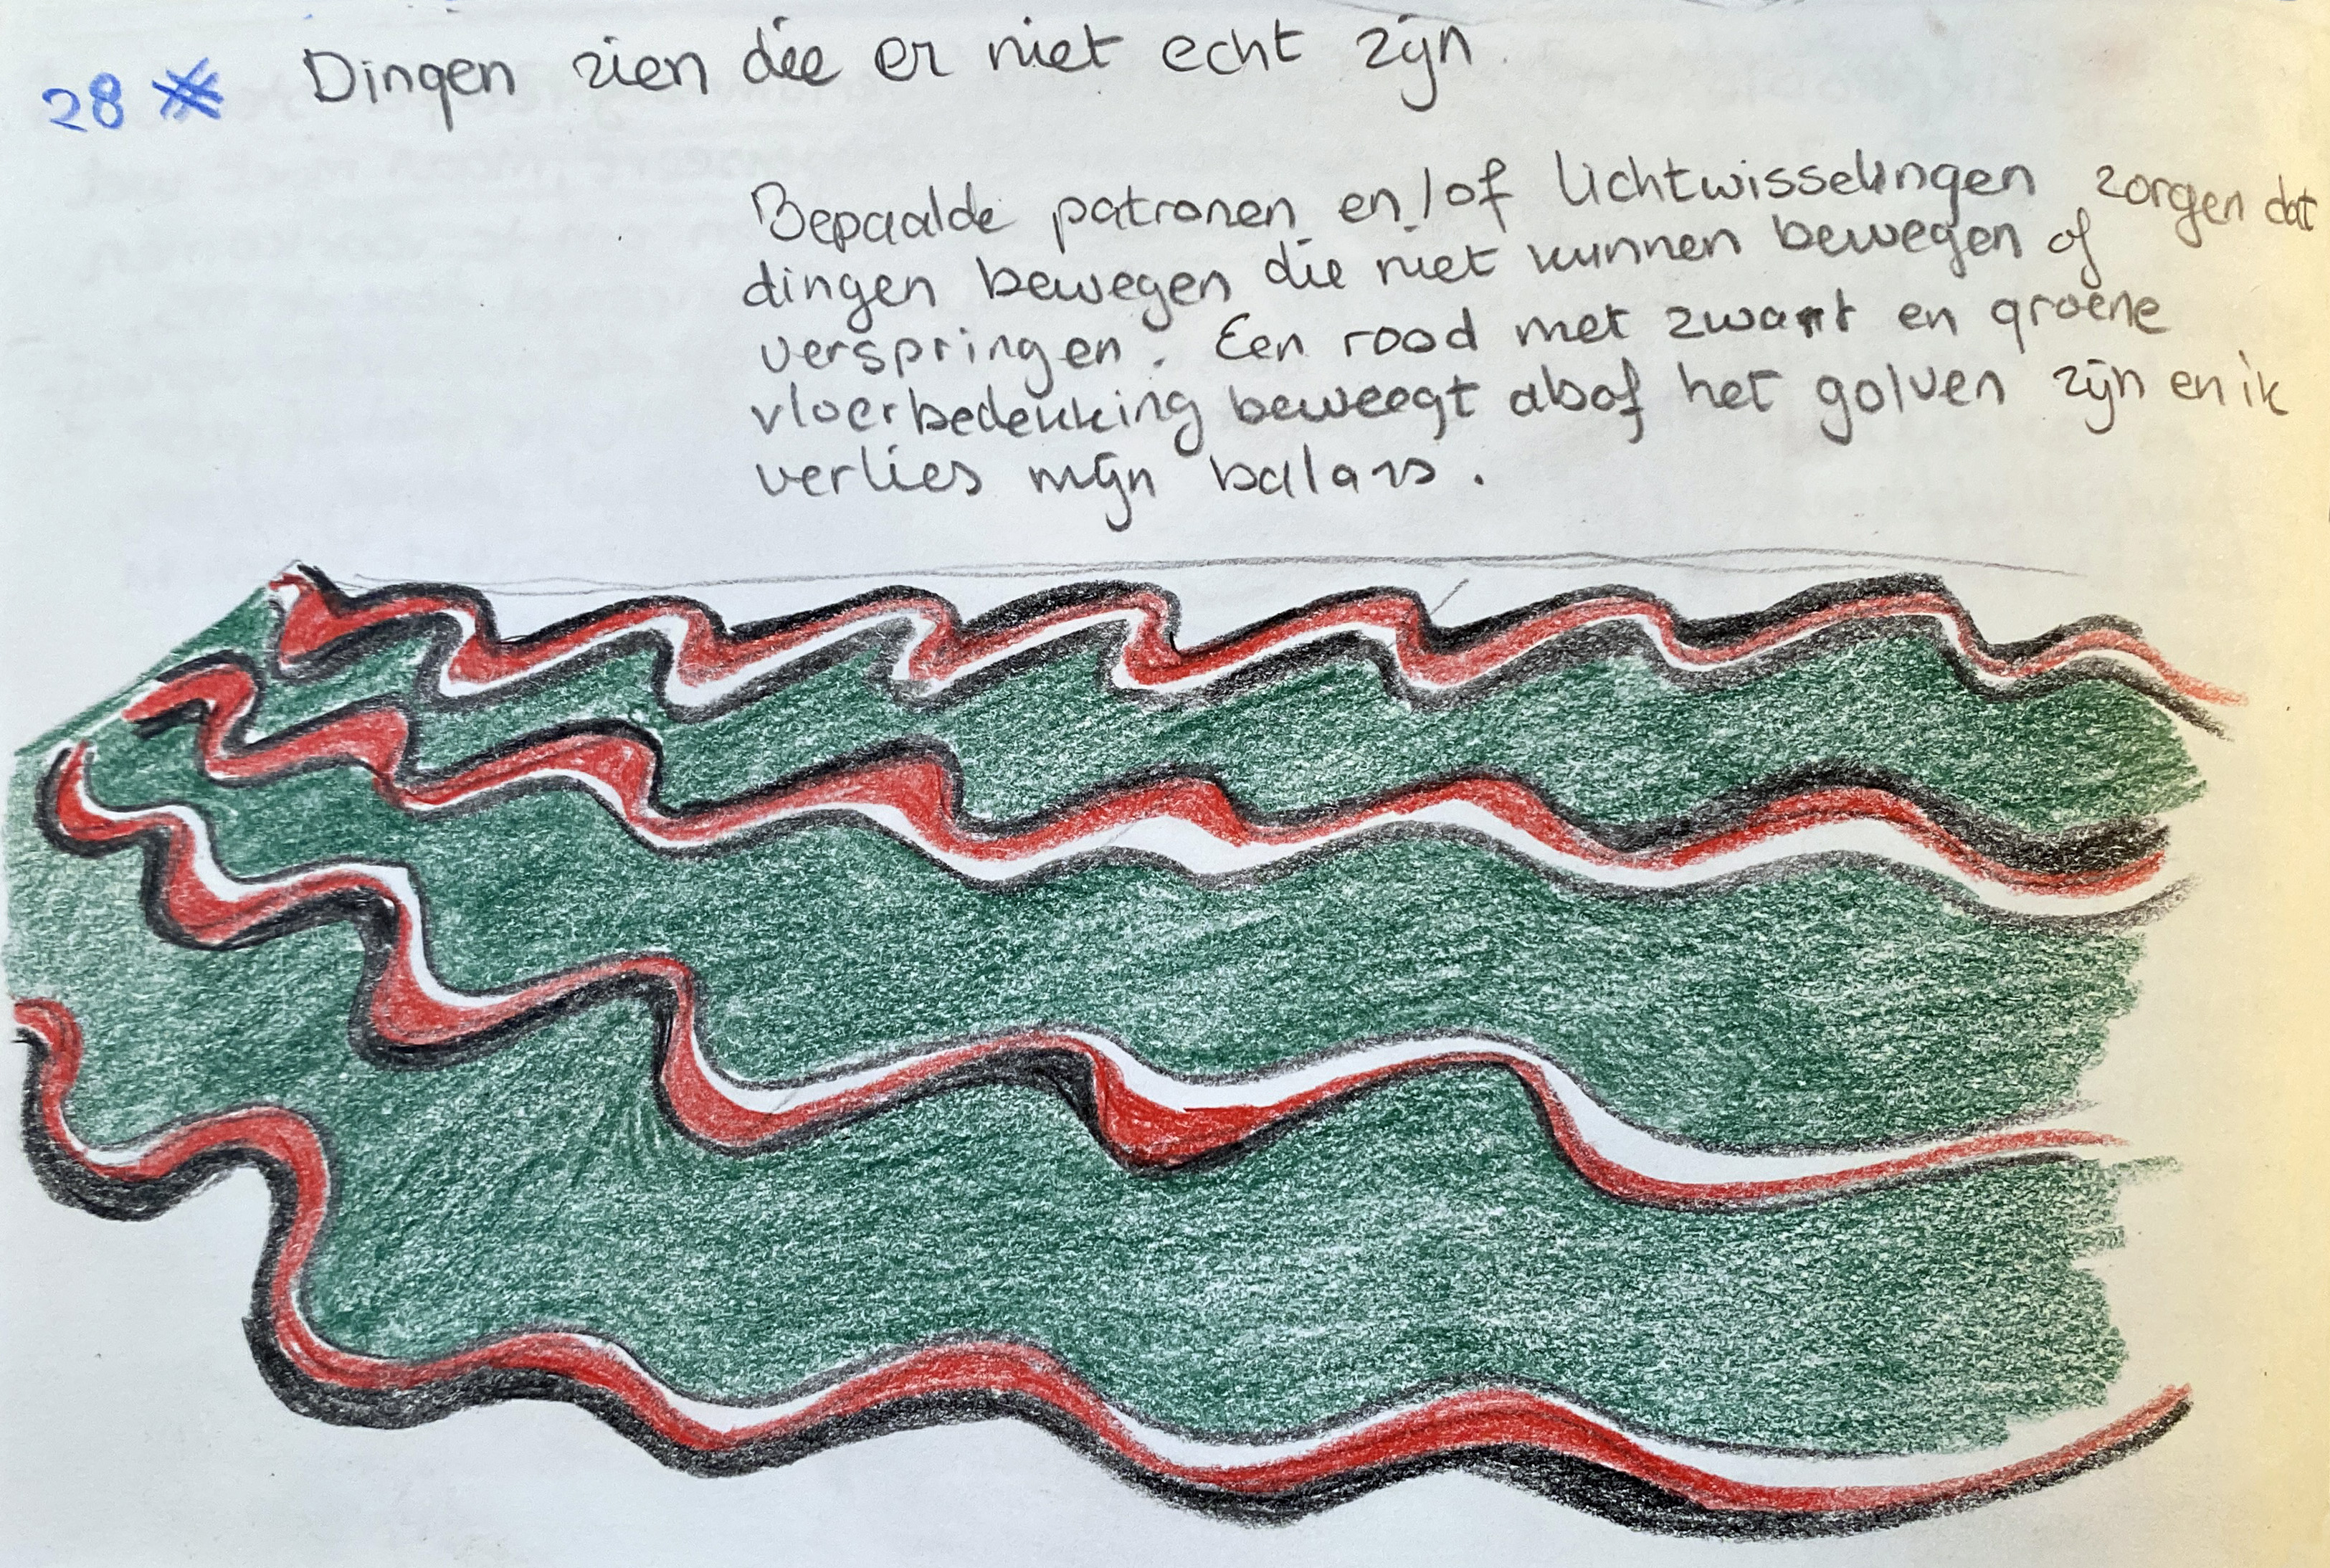 28 * Dingen zien die er niet echt zijn.
Bepaalde patronen en/of lichtwisselingen zorgen dat
dingen bewegen die niet kunnen bewegen of
verspringen. Een rood met zwart en groene
vloerbedekking beweegt alsof het golven zijn en ik
verlies mijn balans.